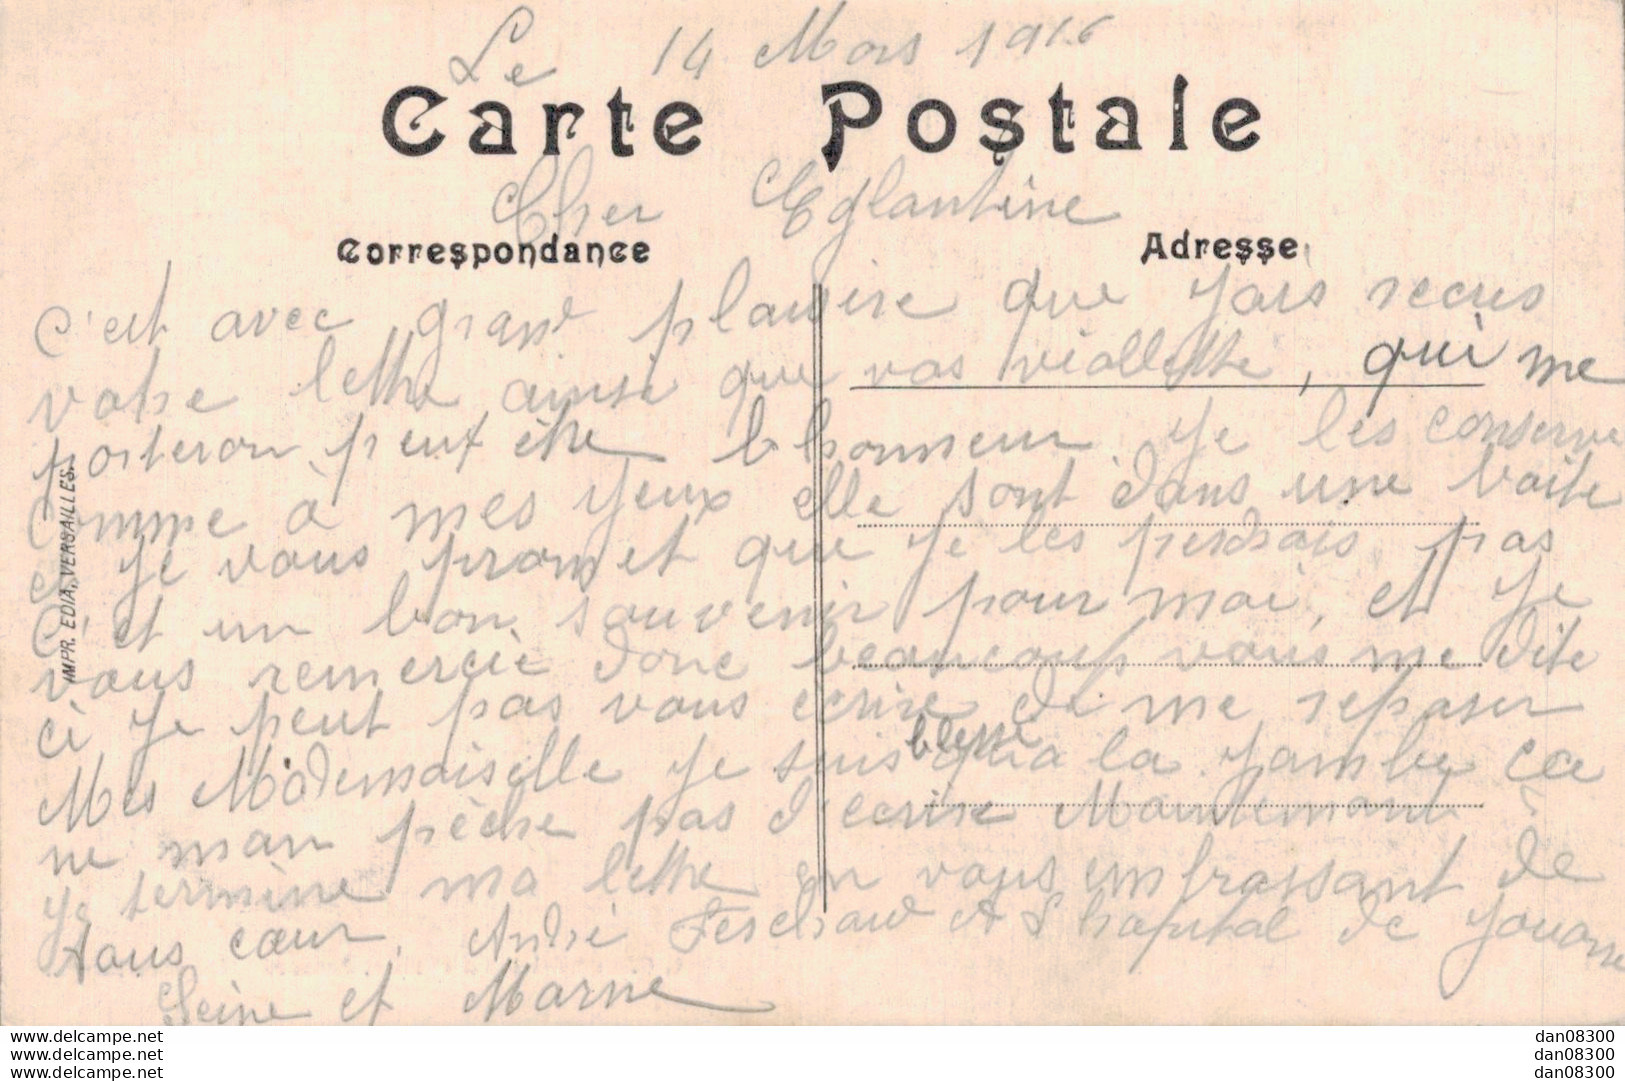 Le 14 Mars 1916
Carte Postale
Cher Eglantine
Correspondance
Adresse
C'est avec grand plaisire que j'ais recus
votre lettre ainsi que vos viollette, qui me
porteron peut être bhonneur je les conserve
comme à mes yeux elle sont dans une boite
et je vous promet que je les perdrais pas
C'et un bon souvenir pour moi, et je
vous remercie donc beaucoup vous me dite
ci je peut pas vous ecrire di me reposer
blessé
Mes Mademaiselle je suis qu'a la jambe ca
ne man pèche pas d'ecrire Maintemant
je termine ma lettre en vous embrassant de
tous cœur. André à l'hopital de Jouarre
Seine et Marne
IMPR. EDIA, VERSAILLES.
www.delcampe.net
www.delcampe.net
www.delcampe.net
dan08300
dan08300
dan08300